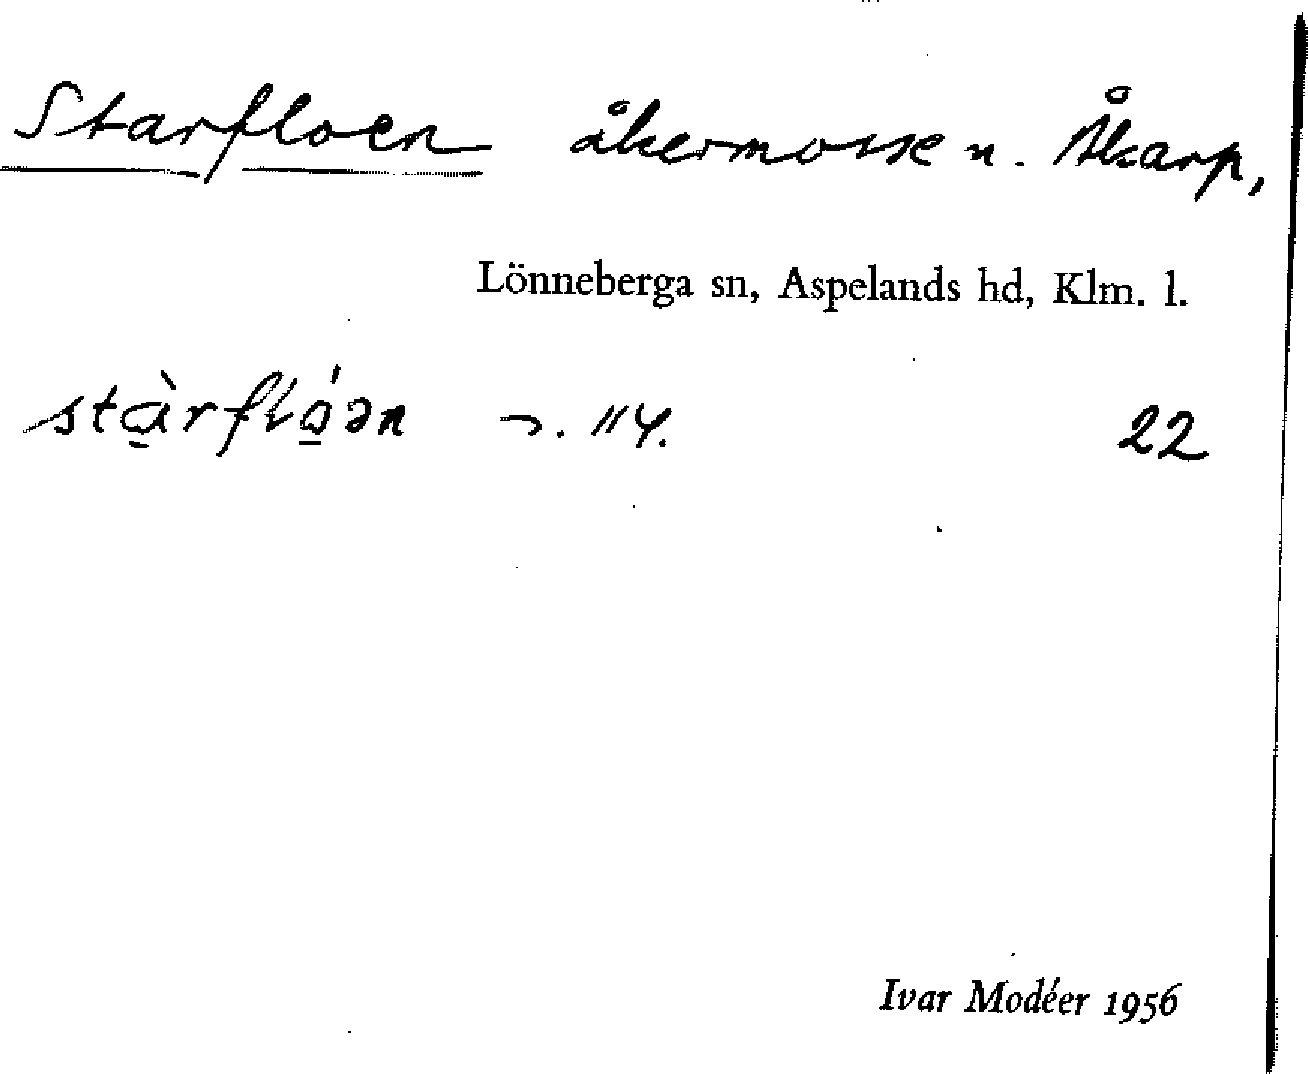 Starfloen åkermosse n. Åkarp,
Lönneberga sn, Aspelands hd, Klm. l.
stà̱rfló̱ən ¬. 114. 22
Ivar Modéer 1956